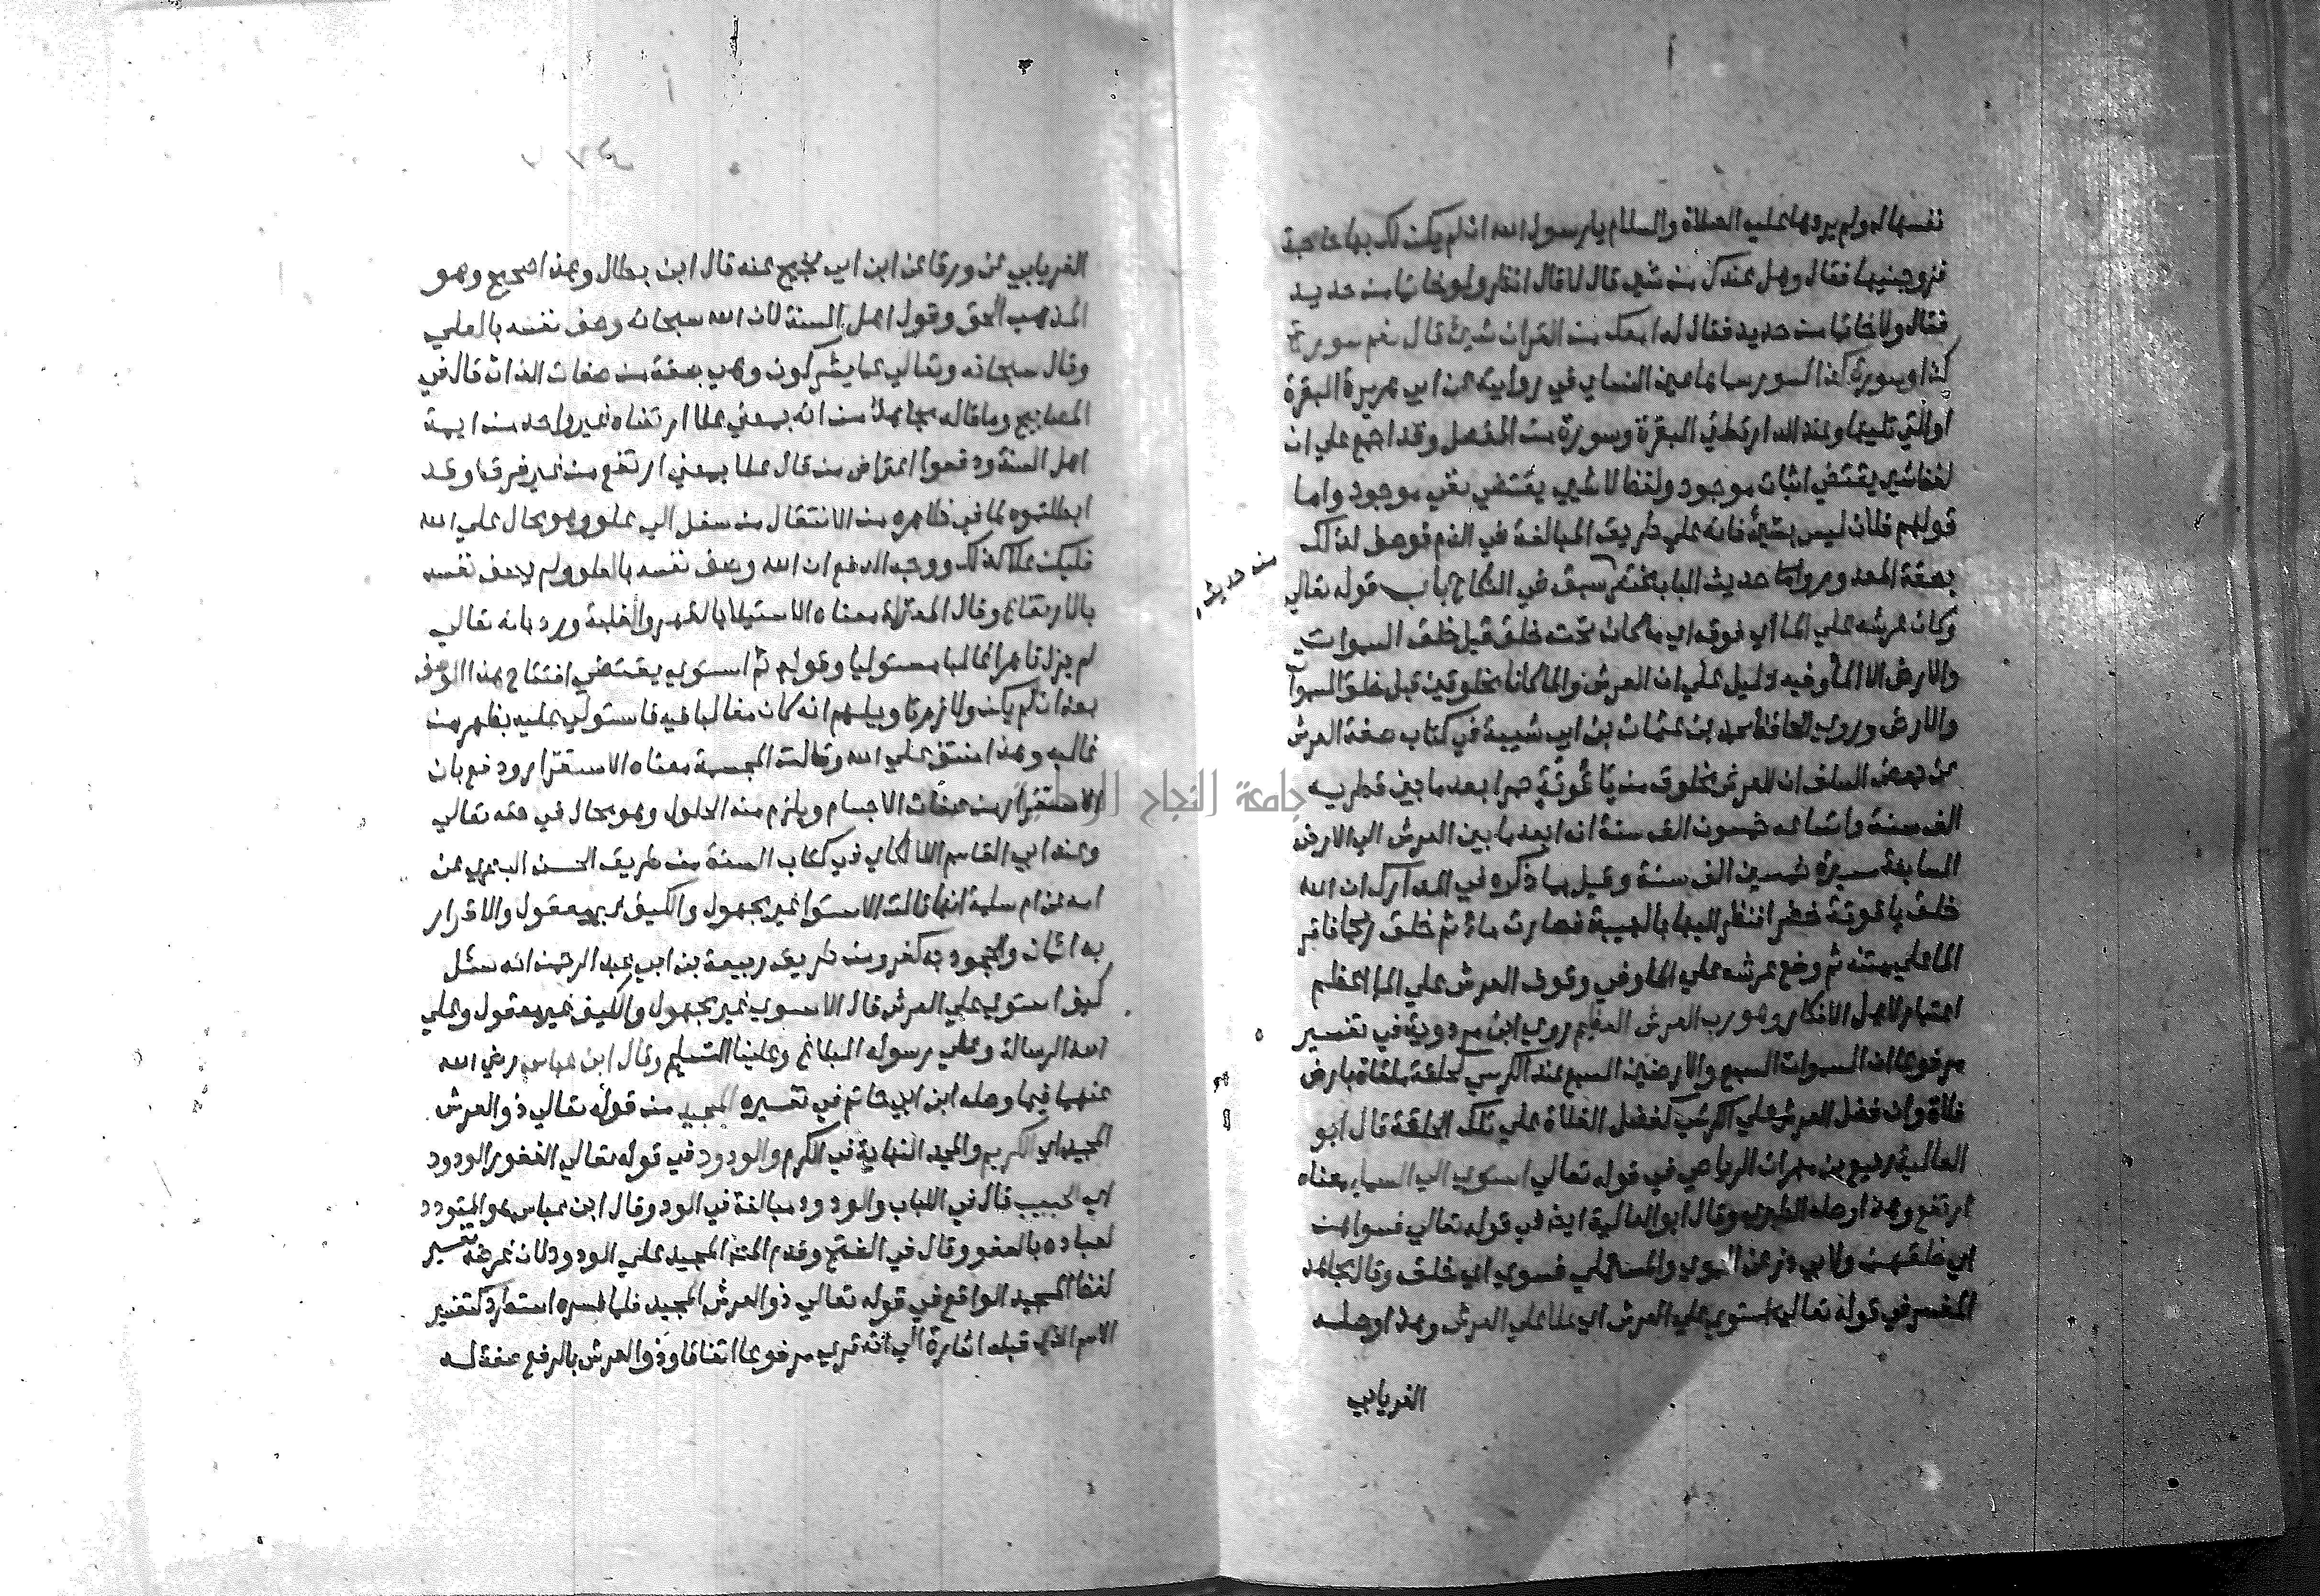 نفسها له ولم يردها عليه الصلاة والسلام يا رسول الله ان لم يكن لك بها حاجة
فزوجنيها فقال وهل عندك من شي قال لا قال انظر ولو خاتما من حديد
فقال ولا خاتما من حديد فقال له امعك من القران شيئ قال نعم سورة
كذا وسورة كذا لسور سماها عين النساي في رواية عن ابي هريرة البقرة
او التي تليها وعند الدارقطني البقرة وسورة من المفصل وقد اجمع علي ان
لفظ شي يقتضي اثبات موجود ولفظ لا شي يقتضي نفي موجود واما
قولهم فلان ليس بشيئ فانه علي طريق المبالغة في الذم فوصف لذلك
بصفة المعدوم واما حديث الباب فختم سبق في النكاح باب قوله تعالي
من حديث
وكان عرشه علي الما اي فوقه اي ما كان تحته خلق قبل خلق السموات
والارض الا الما وفيه دليل علي ان العرش والما كانا مخلوقين قبل خلق السموات
والارض وروي الحافظ محمد بن عثمان بن ابي شيبة في كتاب صفة العرش
عن بعض السلف ان العرش مخلوق من ياقوتة حمرا بعد ما بين قطريه
الف سنة واتساعه خمسون الف سنة انه ابعد ما بين العرش الي الارض
السابعة مسيرة خمسين الف سنة وقيل مما ذكره في المدارك ان الله
خلق ياقوتة خضرا فنظر اليها بالهيبة فصارت ماء ثم خلق ريحا فاقر
الما علي متنه ثم وضع عرشه علي الما وفي وقوف العرش علي الما اعظم
اعتبار لاهل الافكار وهو رب العرش العظيم روي ابن مردوية في تفسير
مرفوعا ان السموات السبع والارضين السبع عند الكرسي كحلقة ملقاة بارض
فلاة وان فضل العرش علي الكرسي كفضل الفلاة علي تلك الحلقة قال ابو
العالية رفيع بن مهران الرياحي في قوله تعالي استوي الي السماء معناه
ارتفع وهذا وصله الطبري وقال ابو العالية ايضا في قوله تعالي فسواهن
اي خلقهن ولابي ذر عن الحموي والمستملي فسوي اي خلق وقال مجاهد
المفسر في قوله تعالي استوي علي العرش اي علا علي العرش وهذا وصله
الفريابي
الفريابي عن ورقا عن ابن ابي نجيح عنه قال ابن بطال وهذا صحيح وهو
المذهب الحق وقول اهل السنة لان الله سبحانه وصف نفسه بالعلي
وقال سبحانه وتعالي عما يشركون وهي بصفة من صفات الذات قال في
المصابيح وما قاله مجاهد من انه بمعني علا ارتضاه غير واحد من ايمة
اهل السنة ودفعوا اعتراض من قال علا بمعني ارتفع من غير فرق وقد
ابطلتموه لما في ظاهره من الانتقال من سفل الي علو وهو محال علي الله
فليكن علا كذلك ووجه الدفع ان الله وصف نفسه بالعلو ولم يصف نفسه
بالارتفاع وقال المعتزلة معناه الاستيلا بالقهر والغلبة ورد بانه تعالي
لم يزل قاهرا غالبا مستوليا وقوله ثم استوي يقتضي افتتاح هذا الوصف
بعد ان لم يكن ولازم تاويلهم انه كان مغالبا فيه فاستولي عليه بقهر من
غالبه وهذا منتف علي الله وقالت المجسمة معناه الاستقرار ودفع بان
الاستقرار من صفات الاجسام ويلزم منه الحلول وهو محال في حقه تعالي
وعند ابي القاسم اللالكاي في كتاب السنة من طريق الحسن البصري عن
امه عن ام سلمة انها قالت الاستوا غير مجهول والكيف غير معقول والاقرار
به ايمان والجحود به كفر ومن طريق ربيعة بن ابي عبد الرحمن انه سئل
كيف استوي علي العرش قال الاستوي غير مجهول والكيف غير معقول وعلي
الله الرسالة وعلي رسوله البلاغ وعلينا التسليم وقال ابن عباس رضي الله
عنهما فيما وصله ابن ابي حاتم في تفسيره المجيد من قوله تعالي ذو العرش
المجيد اي الكريم والمجد النهاية في الكرم والودود في قوله تعالي الغفور الودود
اي الحبيب قال في اللباب والودود مبالغة في الود وقال ابن عباس هو المتودد
لعباده بالعفو وقال في الفتح وقدم المتن المجيد علي الودود لان غرضه تفسير
لفظ المجيد الواقع في قوله تعالي ذو العرش المجيد فلما فسره استطرد لتفسير
الاسم الذي قبله اشارة الي انه قري مرفوعا اتفاقا وذو العرش بالرفع صفة له
جامعة النجاح الوطنية